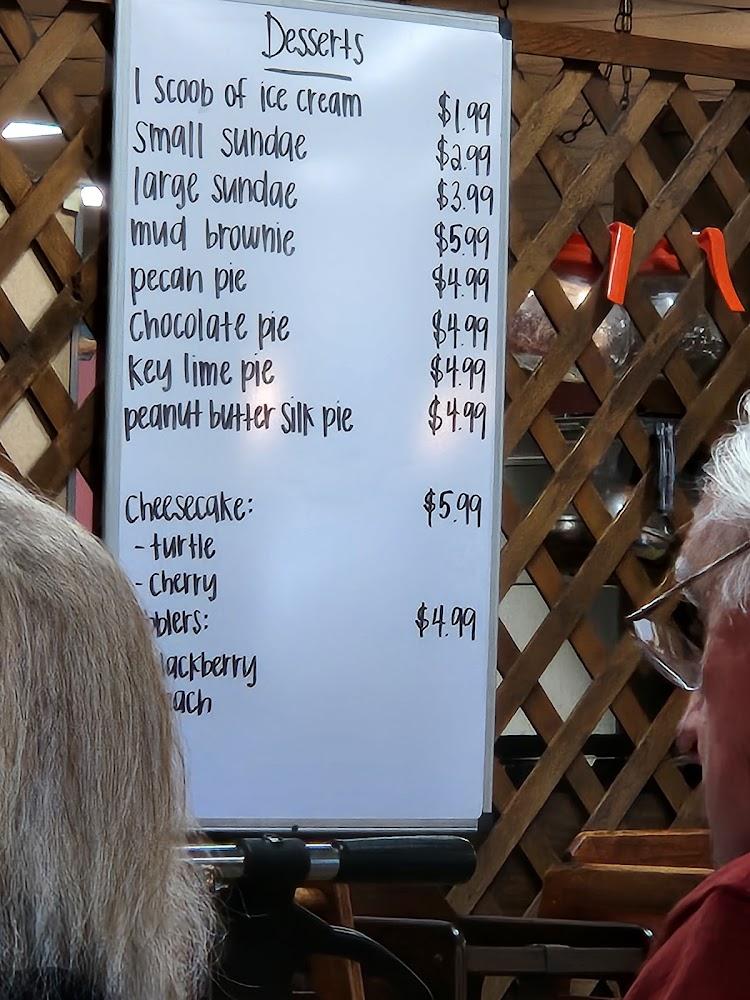 Desserts
1 scoob of ice cream $1.99
small sundae $2.99
large sundae $3.99
mud brownie $5.99
pecan pie $4.99
Chocolate pie $4.99
key lime pie $4.99
peanut butter silk pie $4.99
Cheesecake: $5.99
- turtle
- Cherry
blers: $4.99
ackberry
ach